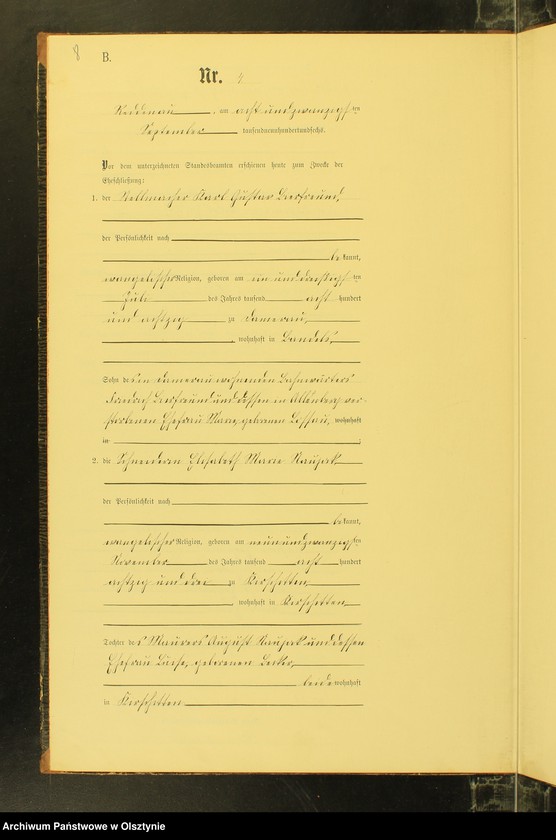 8
B.
Nr. 4
Reddenau, am acht und zwanzigsten
September tausendneunhundertundsechs.
Vor dem unterzeichneten Standesbeamten erschienen heute zum Zwecke der
Eheschließung:
1. der Stellmacher Karl Gustav Bierfreund,
der Persönlichkeit nach
bekannt,
evangelischer Religion, geboren am ein und dreißigsten
Juli des Jahres tausend acht hundert
und achtzig zu Damerau,
, wohnhaft in Bandels,
Sohn des in Damerau wohnenden Bahnwärters
Friedrich Bierfreund und dessen in Albenberg ver-
storbenen Ehefrau Marie, geborenen Lossau, wohnhaft
in
2. die Schneiderin Elisabeth Marie
der Persönlichkeit nach
bekannt,
evangelischer Religion, geboren am neun und zwanzigsten
November des Jahres tausend acht hundert
achtzig und drei zu Kirschitten,
, wohnhaft in Kirschitten,
Tochter des Maurers August und dessen
Ehefrau Luise, geborenen Becker,
beide wohnhaft
in Kirschitten
Archiwum Państwowe w Olsztynie